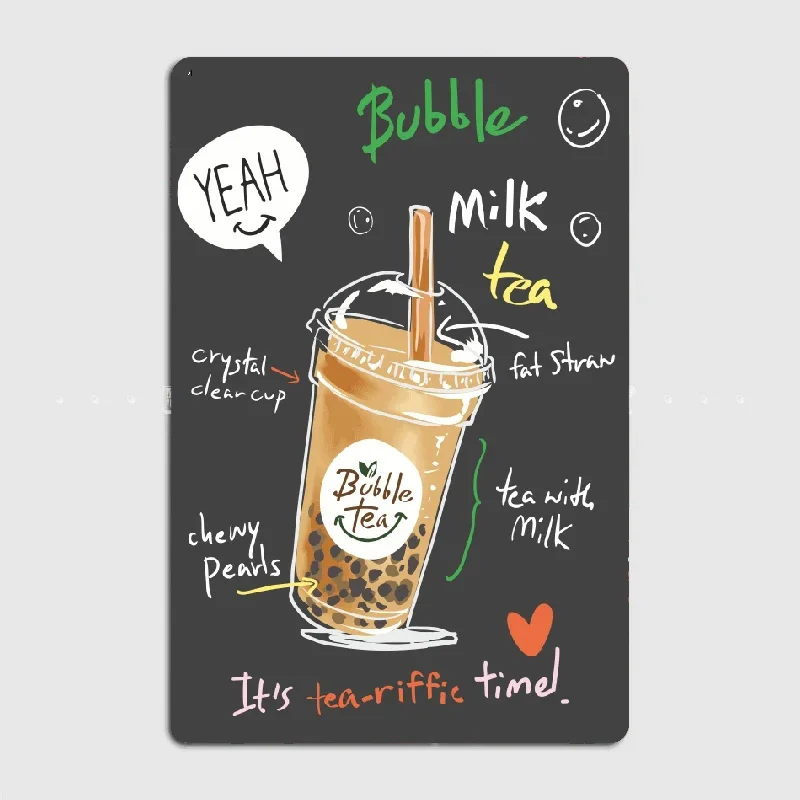 Bubble
YEAH
Milk
tea
crystal
clear cup
fat straw
Bubble
tea
tea with
Milk
chewy
pearls
It's tea-riffic time!.